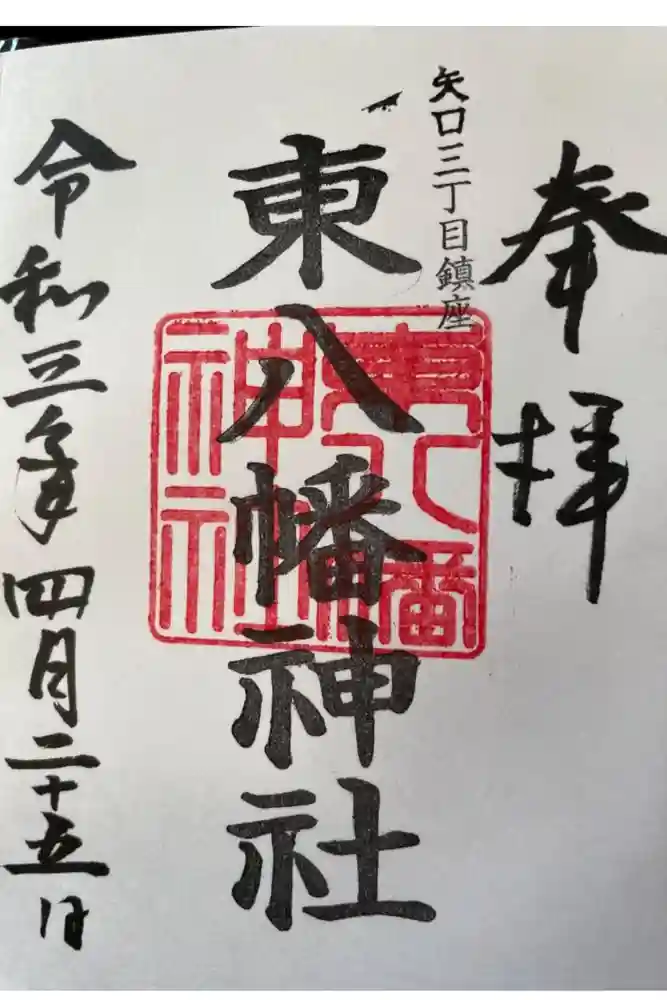 奉拝
矢口三丁目鎮座
東八幡神社
東八幡
神社
令和三年四月二十五日